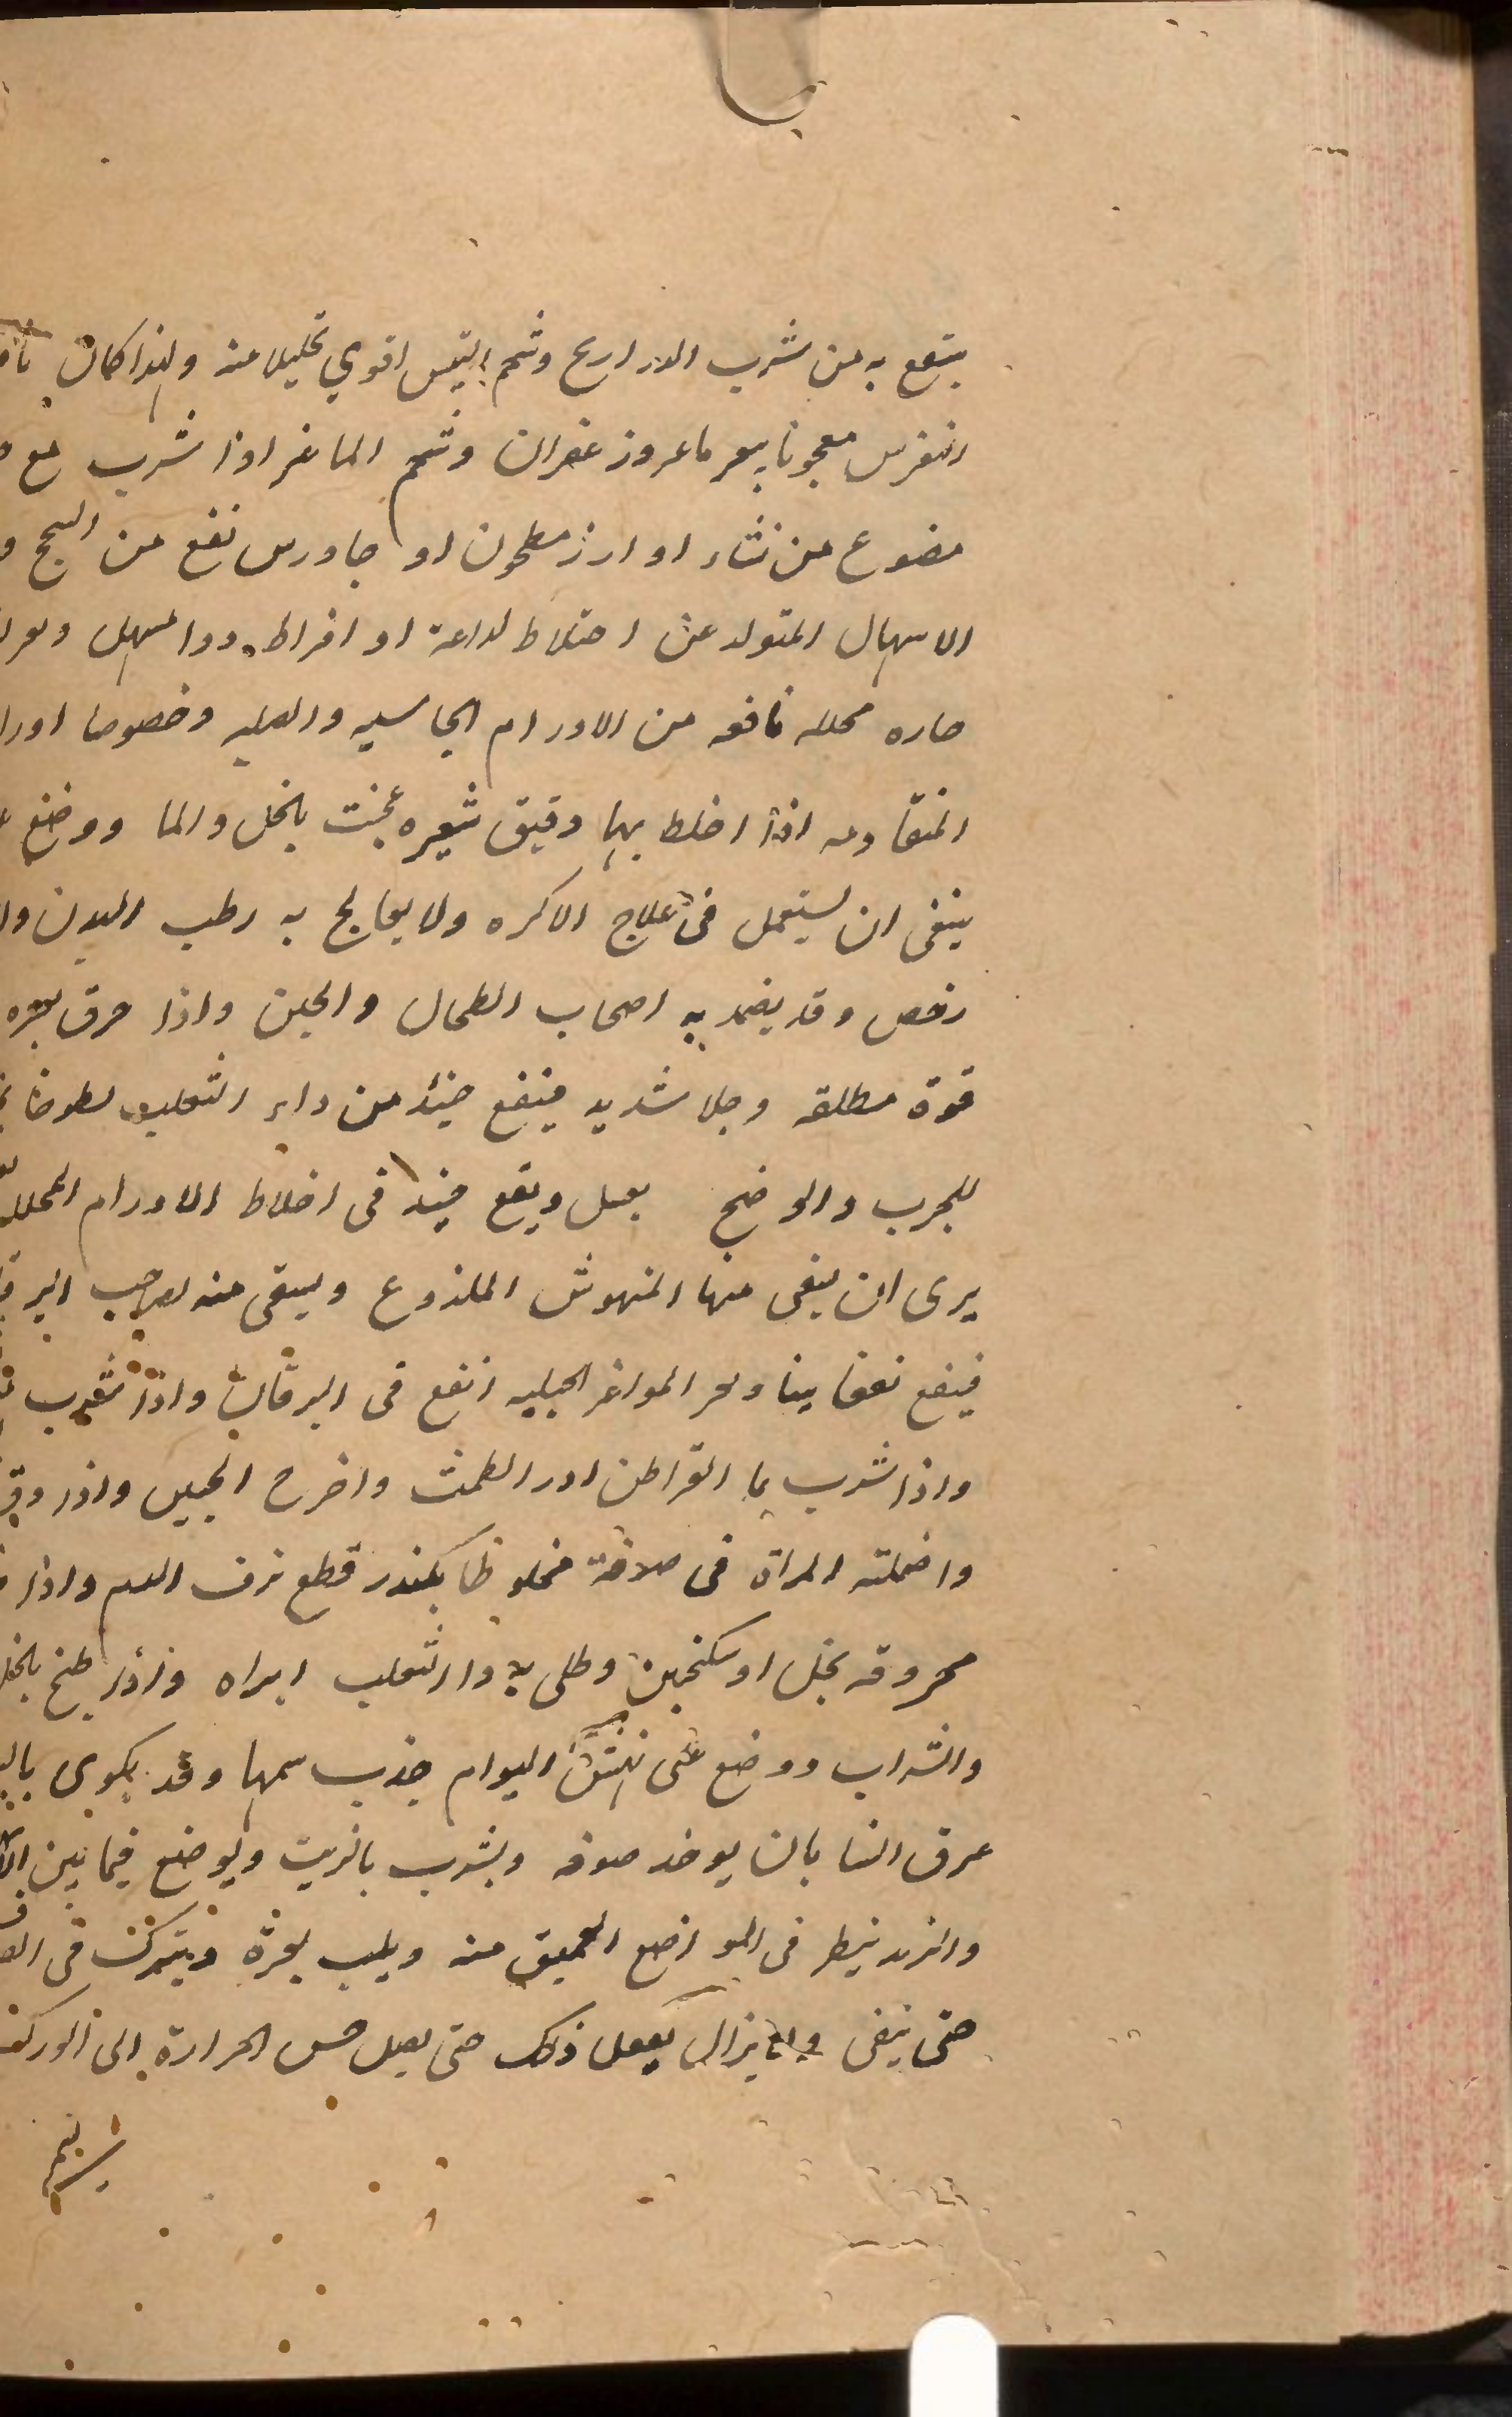 ينتفع به من شرب الدراريح وشحم التيس اقوي تحليلا منه ولهذا كان
النقرس معجونا ببعر ماعز وزعفران وشحم الماعز اذا شرب مع
مصنوع من نشاء او ارز مطحون او جاورس نفع من السحج و
الاسهال المتولد عن اختلاط لداعة او افراط دوا مسهل وبعر
حاره محلله نافعه من الاورام الجاسيه والصلبه وخصوصا
المتقادمه اذا اخلط بها دقيق شعيره عجنت بالخل والما ووضع
ينبغى ان يستعمل فى علاج الاكره ولا يعالج به رطب البدن
رخص وقد يضمد به اصحاب الطحال والحبن واذا حرق بعره
قوة مطلقه وجلا شديد فينفع حينئذ من داء الثعلب لطوخا
للجرب والوضح بعسل ويقع حينئذ فى اخلاط الاورام المحلله
يرى ان يسقى منها المنهوش الملذوع ويسقى منه لصاحب
فينفع نفعا بينا وبعر المواعز الجبليه انفع فى اليرقان واذا شرب
واذا شرب بما القراطن ادر الطمث واخرج الجنين واذا
واحملته المراة فى صوفة مخلوطا بكندر قطع نزف الدم واذا
محروقه بخل او سكنجبين وطلى به داء الثعلب ابراه واذا طبخ بالخل
والشراب ووضع على نهش الهوام جذب سمها وقد يكوى
عرق النسا بان يوخد صوفه ويشرب بالزيت ويوضع فيما بين
والزند فيبطر فى المواضع العميق منه ويلهب بعره ويترك فى
حتى ينفى ولا يزال يفعل ذلك حتى يصل حس الحرارة الى الورك